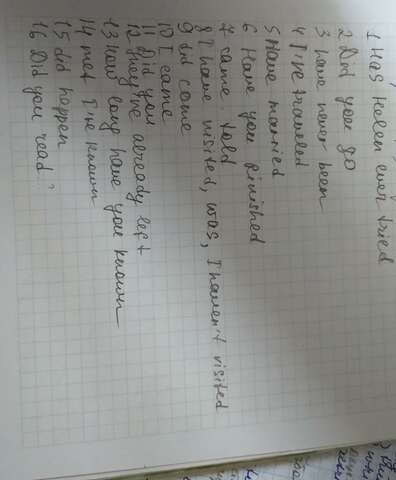 1 Has Helen ever tried
2 Did you go
3 have never been
4 I've traveled
5 Have married
6 Have you finished
7 came told
8 I have visited, was, I haven't visited
9 did come
10 I came
11 Did you
12 they've already left
13 how long have you known
14 met I've known
15 did happen
16 Did you read?